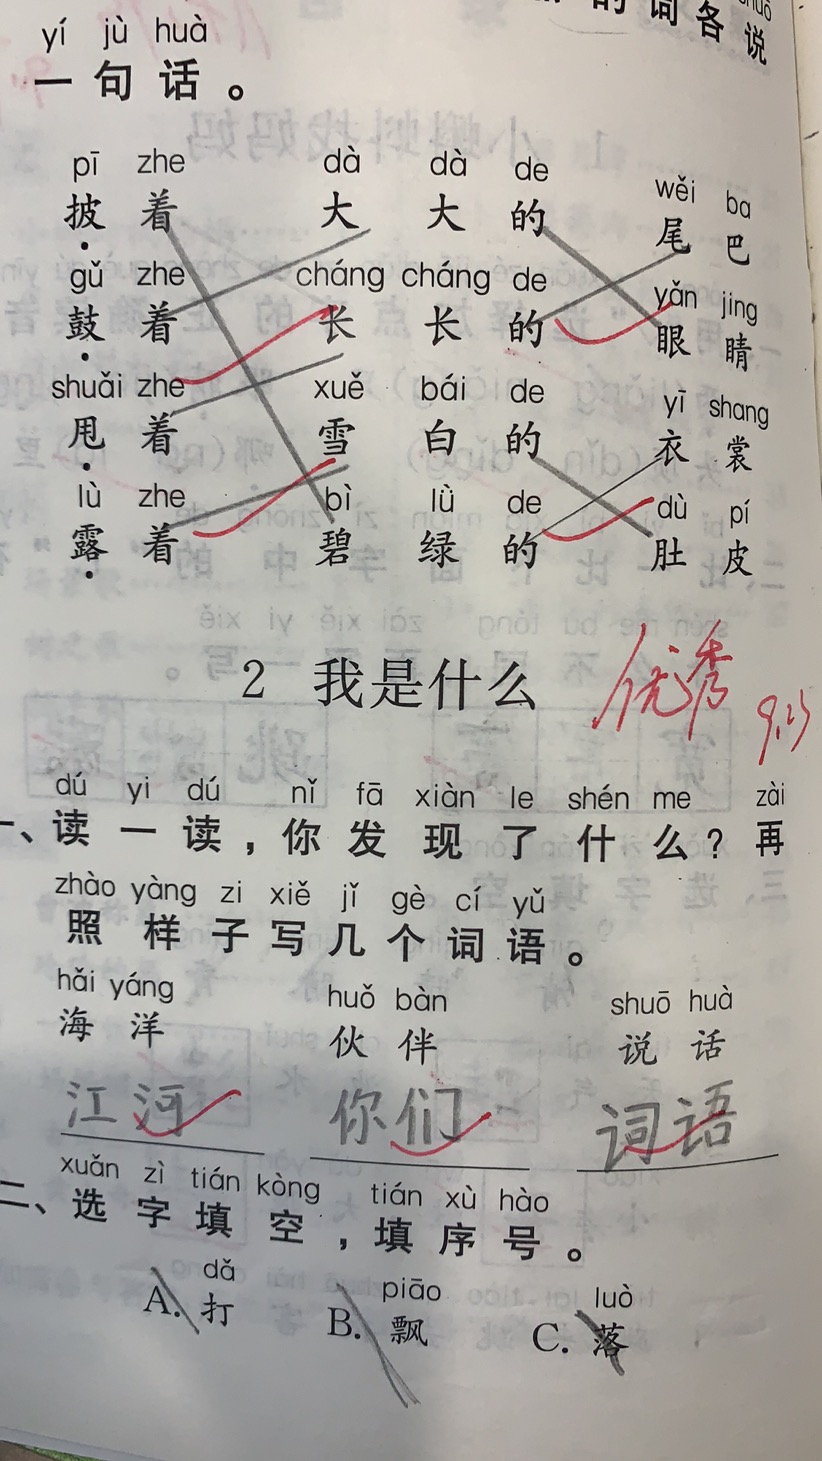 的词各说
yí jù huà
一句话。
pī zhe dà dà de wěi ba
披着 大大的 尾巴
gǔ zhe cháng cháng de yǎn jing
鼓着 长长的 眼睛
shuǎi zhe xuě bái de yī shang
甩着 雪白的 衣裳
lù zhe bì lǜ de dù pí
露着 碧绿的 肚皮
2 我是什么 优秀
9.23
dú yi dú nǐ fā xiàn le shén me zài
一、读一读，你发现了什么？再
zhào yàng zi xiě jǐ gè cí yǔ
照样子写几个词语。
hǎi yáng huǒ bàn shuō huà
海洋 伙伴 说话
江河 你们 词语
xuǎn zì tián kòng tián xù hào
二、选字填空，填序号。
dǎ piāo luò
A. 打 B. 飘 C. 落